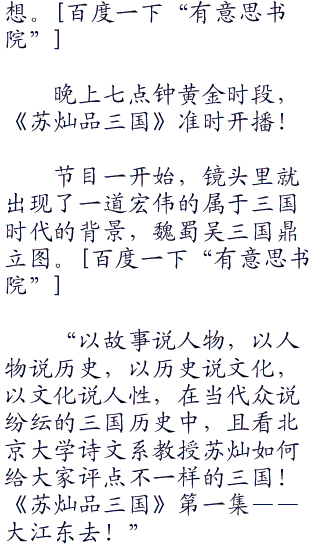 想。[百度一下“有意思书
院”]
晚上七点钟黄金时段，
《苏灿品三国》准时开播！
节目一开始，镜头里就
出现了一道宏伟的属于三国
时代的背景，魏蜀吴三国鼎
立图。[百度一下“有意思书
院”]
“以故事说人物，以人
物说历史，以历史说文化，
以文化说人性，在当代众说
纷纭的三国历史中，且看北
京大学诗文系教授苏灿如何
给大家评点不一样的三国！
《苏灿品三国》第一集——
大江东去！”